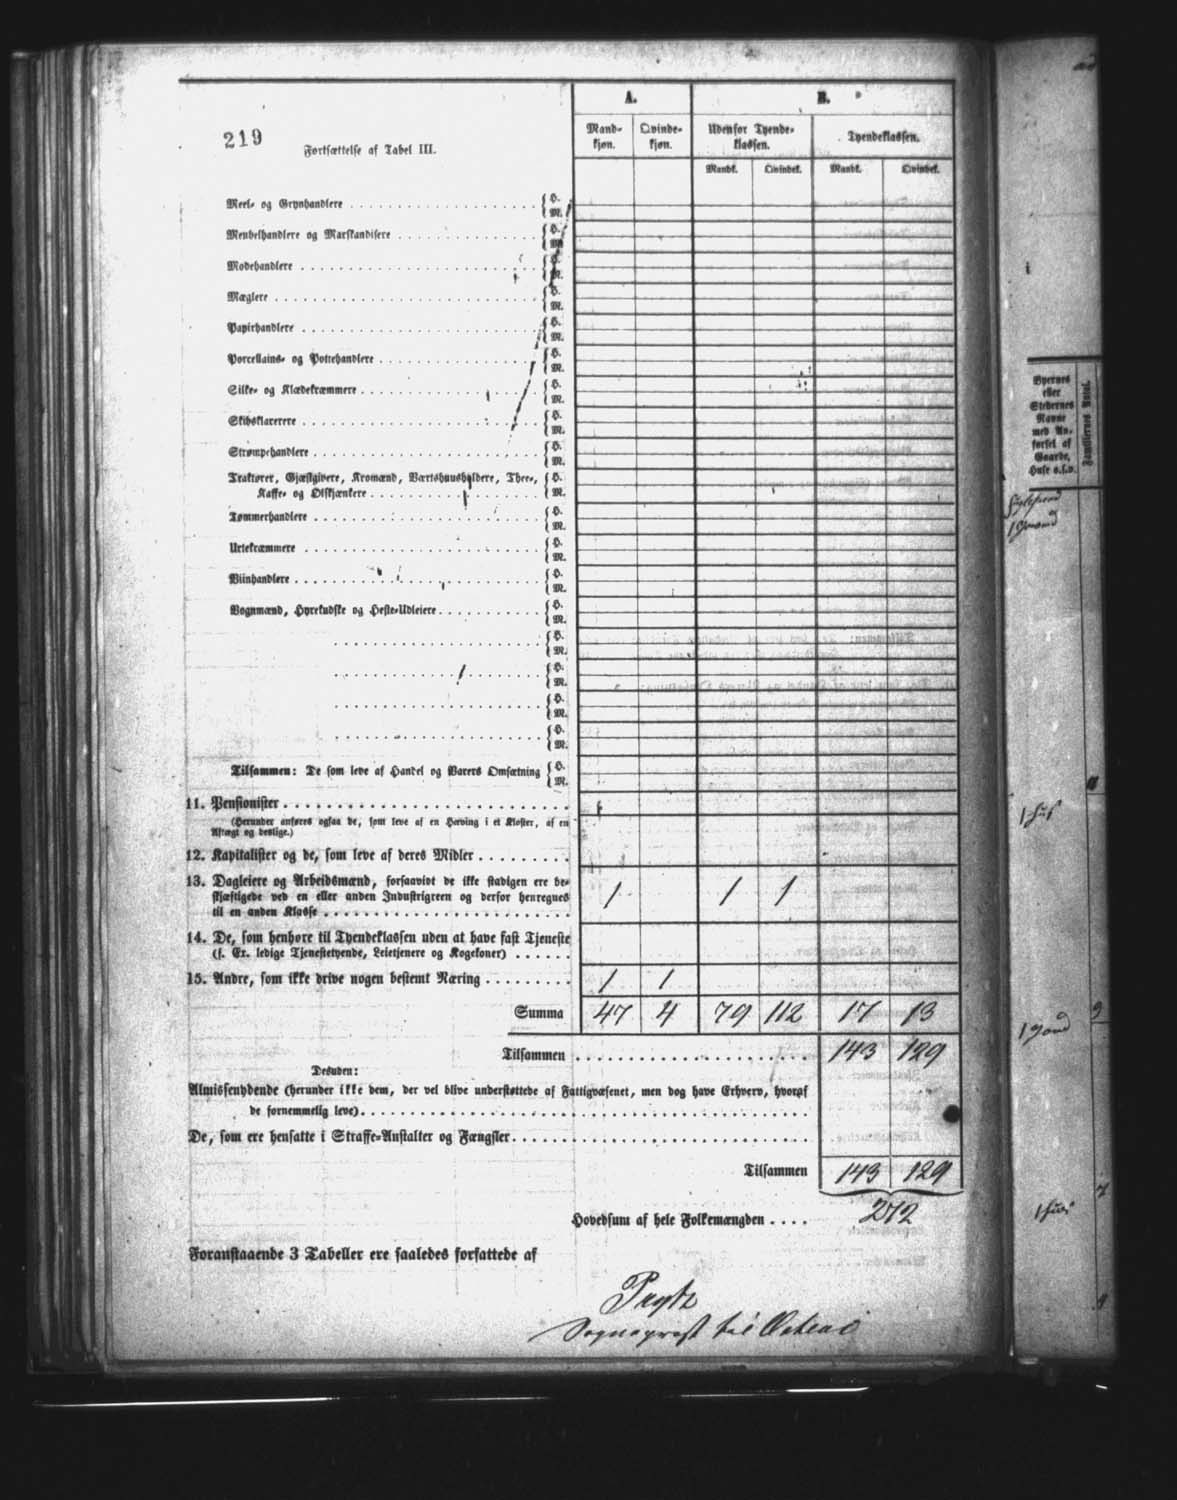 219
Fortsættelse af Tabel III.
A.
B.
Mandkjøn.
Qvindekjøn.
Udenfor Tyendeklassen.
Tyendeklassen.
Mandk.
Qvindek.
Mandk.
Qvindek.
Meel- og Grynhandlere { H. M.
Meubelhandlere og Marskandisere { H. M.
Modehandlere { H. M.
Mæglere { H. M.
Papirhandlere { H. M.
Porcellains- og Pottehandlere { H. M.
Silke- og Klædekræmmere { H. M.
Skibsklarerere { H. M.
Strømpehandlere { H. M.
Traktører, Gjæstgivere, Kromænd, Værtshuusholdere, Thee-,
Kaffe- og Ølskjænkere { H. M.
Tømmerhandlere { H. M.
Urtekræmmere { H. M.
Viinhandlere { H. M.
Vognmænd, Hyrekudske og Heste-Udleiere { H. M.
{ H. M.
{ H. M.
{ H. M.
{ H. M.
Tilsammen: De som leve af Handel og Varers Omsætning { H. M.
11. Pensionister
(Herunder anføres ogsaa de, som leve af en Hæving i et Kloster, af en
Aftægt og deslige.)
12. Kapitalister og de, som leve af deres Midler
13. Dagleiere og Arbeidsmænd, forsaavidt de ikke stadigen ere be-
skjæftigede ved en eller anden Industrigreen og derfor henregnes
til en anden Klasse 1 1 1
14. De, som henhøre til Tyendeklassen uden at have fast Tjeneste
(f. Ex. ledige Tjenestetyende, Leietjenere og Kogekoner)
15. Andre, som ikke drive nogen bestemt Næring 1 1
Summa 47 4 79 112 17 13
Tilsammen 143 129
Desuden:
Almissenydende (herunder ikke dem, der vel blive understøttede af Fattigvæsenet, men dog have Erhverv, hvoraf
de fornemmelig leve)
De, som ere hensatte i Straffe-Anstalter og Fængsler
Tilsammen 143 129
Hovedsum af hele Folkemængden 272
Foranstaaende 3 Tabeller ere saaledes forfattede af
Prytz
Sognepræst til
Byernes
eller
Stedernes
Navne
med An-
førsel af
Gaarde,
Huse o.s.v.
Familiernes Antal.
1 Huus
1 Gaard
1 Huus